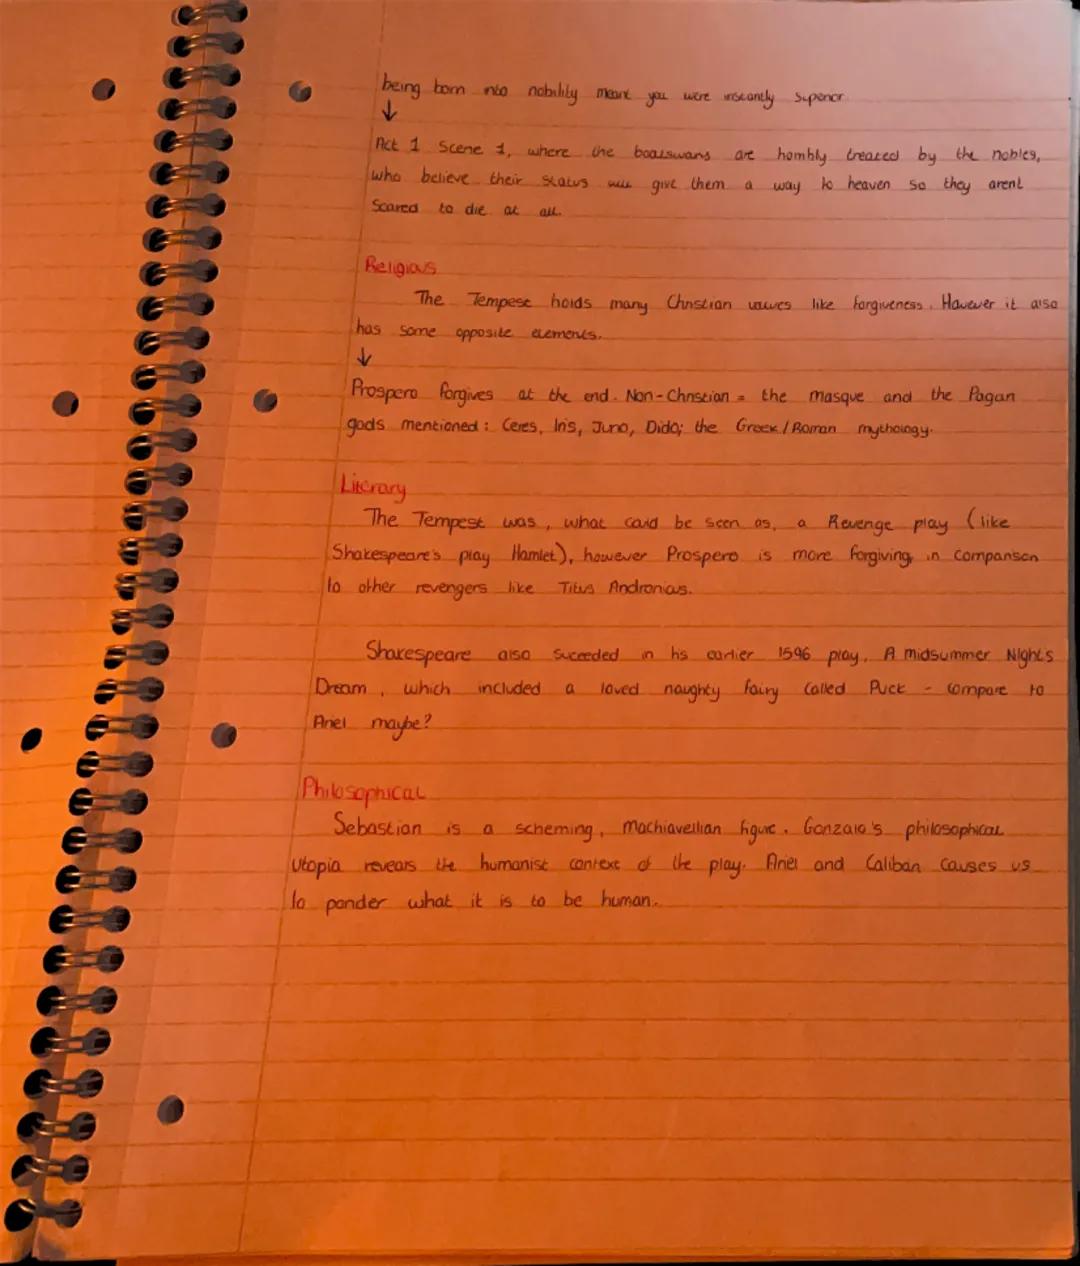 being born into nobility meant you were instantly superior
↓
Act 1 Scene 1, where the boatswans are horribly treated by the nobles,
who believe their status will give them a way to heaven so they arent
scared to die at all.
Religious
The Tempest holds many Christian values like forgiveness. However it also
has some opposite elements.
↓
Prospero forgives at the end. Non-Christian = the masque and the Pagan
gods mentioned: Ceres, Iris, Juno, Dido; the Greek/Roman mythology.
Literary
The Tempest was, what could be seen as, a Revenge play (like
Shakespeare's play Hamlet), however Prospero is more forgiving, in comparison
to other revengers like Titus Andronicus.
Shakespeare also suceeded in his earlier 1596 play, A midsummer Night's
Dream, which included a loved naughty fairy called Puck - compare to
Ariel maybe?
Philosophical
Sebastian is a scheming, machiavellian figure. Gonzalo's philosophical
utopia reveals the humanist context of the play. Ariel and Caliban causes us
to ponder what it is to be human.